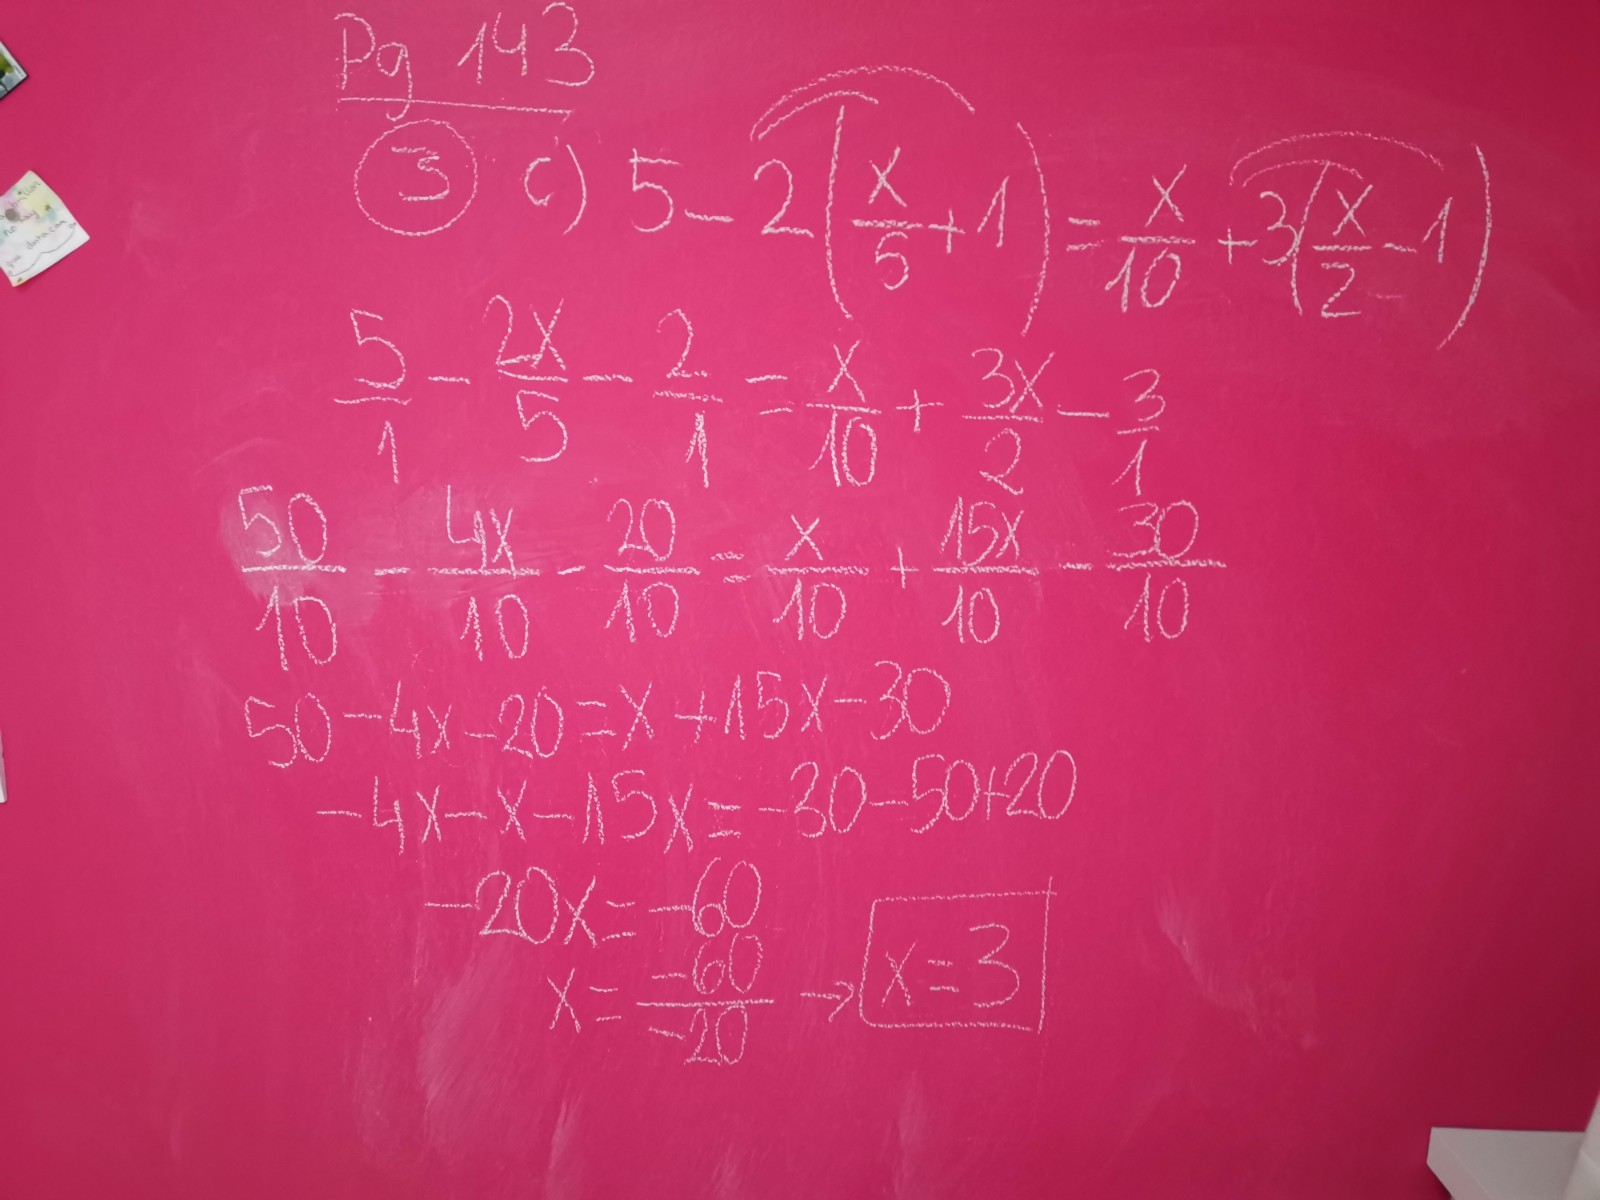 Pg 143
3 c) 5 - 2(x/5 + 1) = x/10 + 3(x/2 - 1)
5/1 - 2x/5 - 2/1 = x/10 + 3x/2 - 3/1
50/10 - 4x/10 - 20/10 = x/10 + 15x/10 - 30/10
50 - 4x - 20 = x + 15x - 30
-4x - x - 15x = -30 - 50 + 20
-20x = -60
x = -60/-20 → x = 3